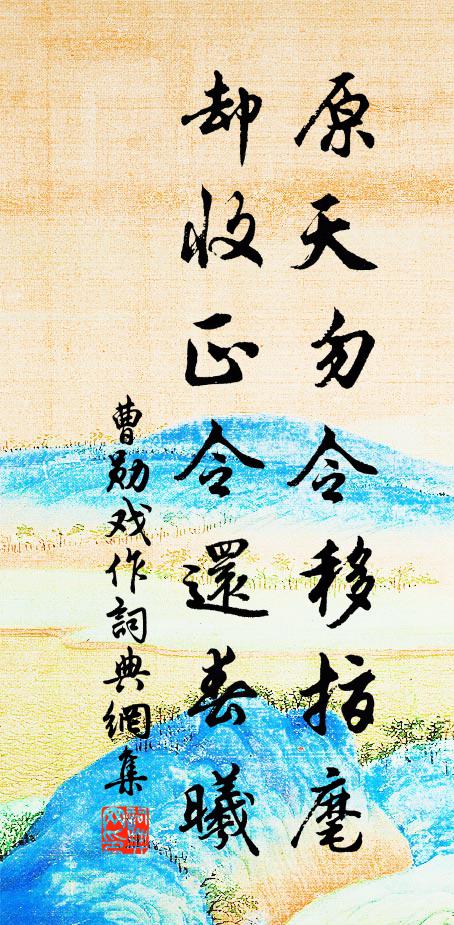 原天勿令移指麾
却收正令還春曦
曹勛戏作詞典網集